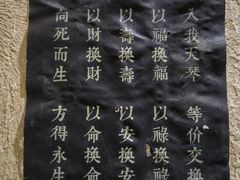 入我天琴 等价交換
以福換福 以祿換祿
以壽換壽 以安換安
以財換財 以命換命
向死而生 方得永生